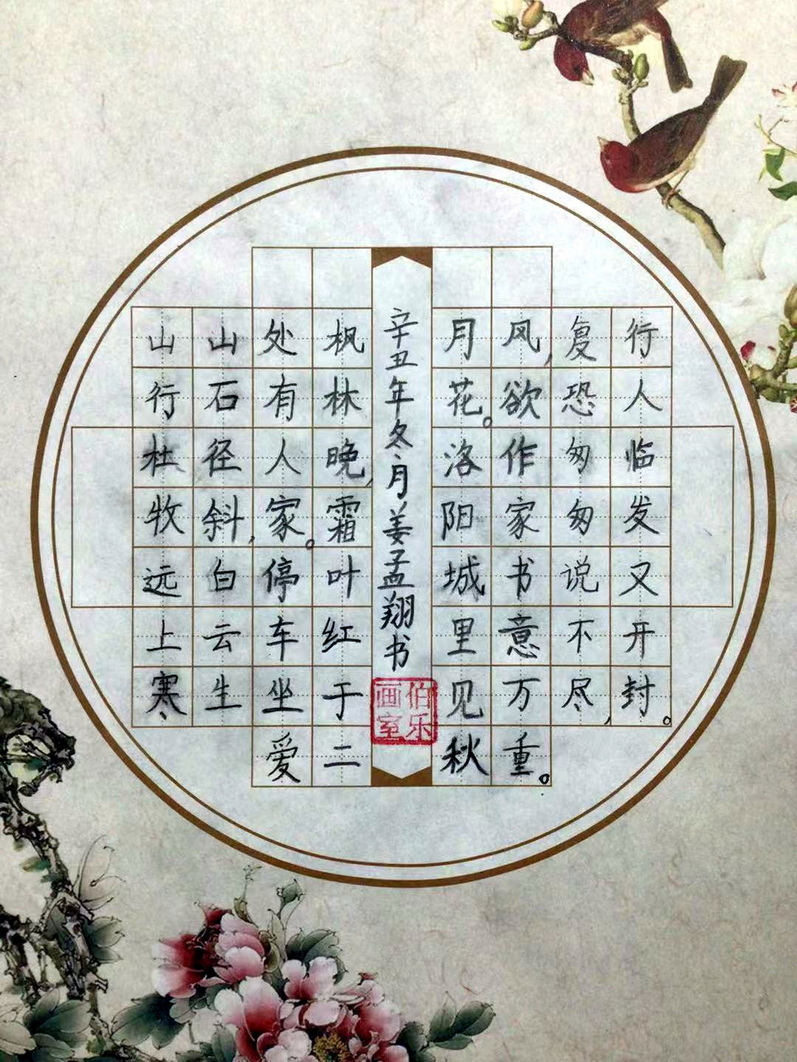 山行杜牧远上寒
山石径斜,白云生
处有人家。停车坐爱
枫林晚,霜叶红于二
月花。洛阳城里见秋
风,欲作家书意万重。
复恐匆匆说不尽,
行人临发又开封。
辛丑年冬月姜孟翔书
伯乐
画室